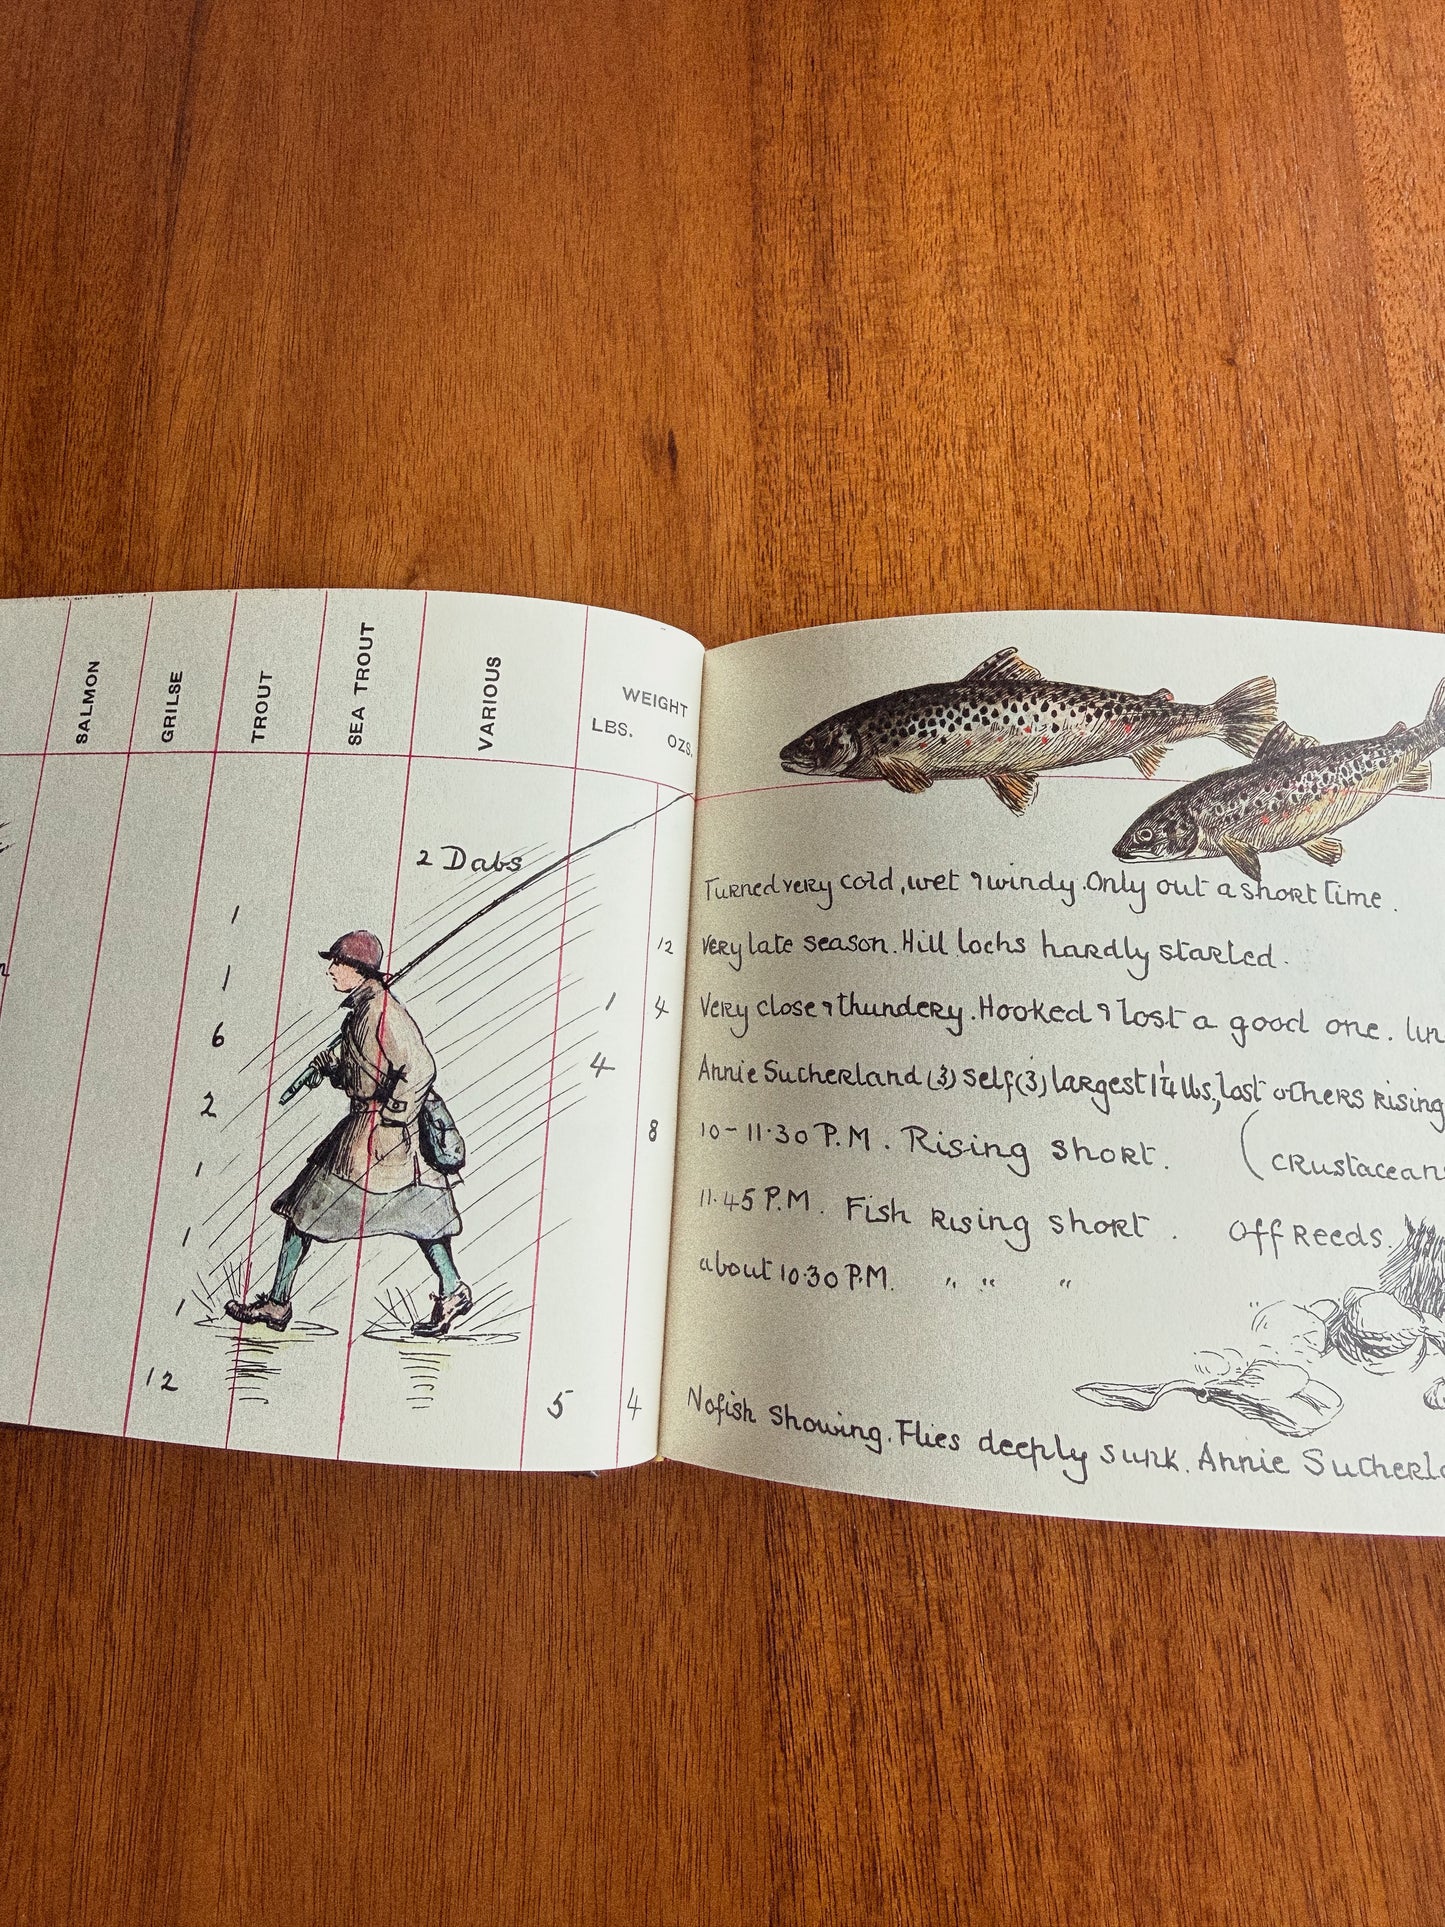 SALMON
GRILSE
TROUT
SEA TROUT
VARIOUS
WEIGHT
LBS. OZS.
2 Dabs
1
1 12
6 1 4
2 4
1 8
1
1
12 5 4
Turned very cold, wet & windy. Only out a short time.
Very late season. Hill lochs hardly started.
Very close & thundery. Hooked & lost a good one.
Annie Sutherland (3) self (3) largest 1¼ lbs, lost others rising
10-11.30 P.M. Rising short. (crustacean
11.45 P.M. Fish rising short. Off Reeds.
about 10.30 P.M. " " "
No fish showing. Flies deeply sunk. Annie Sutherla